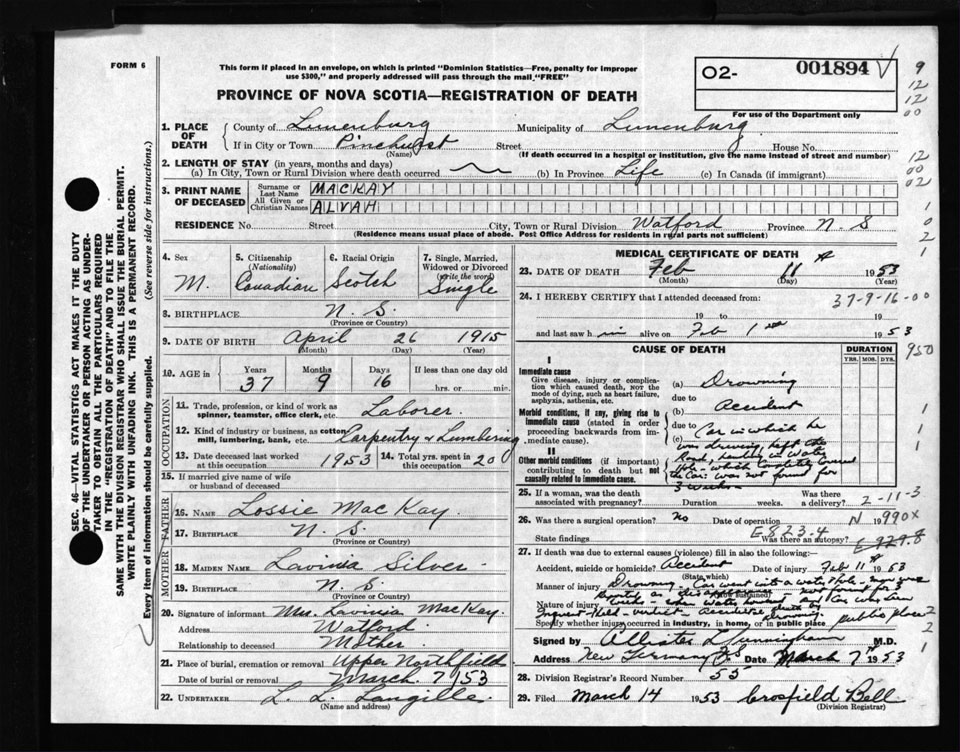 FORM 6
This form if placed in an envelope, on which is printed "Dominion Statistics—Free, penalty for improper
use $300," and properly addressed will pass through the mail "FREE"
PROVINCE OF NOVA SCOTIA—REGISTRATION OF DEATH
O2- 001894
For use of the Department only
9
12
12
00
12
00
02
1
0
2
1
SEC. 46—VITAL STATISTICS ACT MAKES IT THE DUTY
OF THE UNDERTAKER OR PERSON ACTING AS UNDER-
TAKER TO OBTAIN ALL THE PARTICULARS REQUIRED
IN THE "REGISTRATION OF DEATH" AND TO FILE THE
SAME WITH THE DIVISION REGISTRAR WHO SHALL ISSUE THE BURIAL PERMIT.
WRITE PLAINLY WITH UNFADING INK. THIS IS A PERMANENT RECORD.
Every item of information should be carefully supplied. (See reverse side for instructions.)
1. PLACE OF DEATH
County of Lunenburg Municipality of Lunenburg
If in City or Town Pinehurst Street House No.
(Name) (If death occurred in a hospital or institution, give the name instead of street and number)
2. LENGTH OF STAY (in years, months and days)
(a) In City, Town or Rural Division where death occurred (b) In Province Life (c) In Canada (if immigrant)
3. PRINT NAME OF DECEASED
Surname or Last Name MACKAY
All Given or Christian Names ALVAH
RESIDENCE No. Street City, Town or Rural Division Watford Province N S
(Residence means usual place of abode. Post Office Address for residents in rural parts not sufficient)
4. Sex M.
5. Citizenship (Nationality) Canadian
6. Racial Origin Scotch
7. Single, Married, Widowed or Divorced (write the word) Single
8. BIRTHPLACE N. S.
(Province or Country)
9. DATE OF BIRTH April 26 1915
(Month) (Day) (Year)
10. AGE in Years Months Days If less than one day old
37 9 16 hrs. or min.
OCCUPATION
11. Trade, profession, or kind of work as spinner, teamster, office clerk, etc. Laborer.
12. Kind of industry or business, as cotton mill, lumbering, bank, etc. Carpentry & Lumbering
13. Date deceased last worked at this occupation 1953 14. Total yrs. spent in this occupation 20
15. If married give name of wife or husband of deceased
FATHER
16. NAME Lossie MacKay.
17. BIRTHPLACE N. S.
(Province or Country)
MOTHER
18. MAIDEN NAME Lavinia Silver
19. BIRTHPLACE N. S.
(Province or Country)
20. Signature of informant Mrs. Lavinia MacKay.
Address Watford
Relationship to deceased Mother
21. Place of burial, cremation or removal Upper Northfield
Date of burial or removal March 7 153
22. UNDERTAKER L. L. Langille.
(Name and address)
MEDICAL CERTIFICATE OF DEATH
23. DATE OF DEATH Feb 11 1953
(Month) (Day) (Year)
24. I HEREBY CERTIFY that I attended deceased from: 37-9-16-00
19 to 19
and last saw him alive on Feb 1 1953
CAUSE OF DEATH DURATION
YRS. MOS. DYS.
950
I
Immediate cause
Give disease, injury or complication which caused death, NOT the mode of dying, such as heart failure, asphyxia, asthenia, etc.
(a) Drowning
due to
Morbid conditions, if any, giving rise to immediate cause (stated in order proceeding backwards from immediate cause).
(b) Accident
due to
(c) Car in which he
was driving, left the
Road, landing in water
Hole - which completely covered
the Car. was not found for
3 weeks
II
Other morbid conditions (if important) contributing to death but not causally related to immediate cause.
1
1
25. If a woman, was the death associated with pregnancy? Duration weeks. Was there a delivery? 2-11-3
26. Was there a surgical operation? no Date of operation N 19 990X
E823.4
State findings Was there an autopsy? E929.8
27. If death was due to external causes (violence) fill in also the following:—
Accident, suicide or homicide? Accident Date of injury Feb 11 1953
(State which)
Manner of injury Drowning - Car went into a water hole
Nature of injury
Specify whether injury occurred in industry, in home, or in public place public place
2
2
1
Signed by Allister Cunningham M.D.
Address New Germany NS Date March 7th 1953
28. Division Registrar's Record Number 55
29. Filed March 14 1953 Crosfield Bell
(Division Registrar)